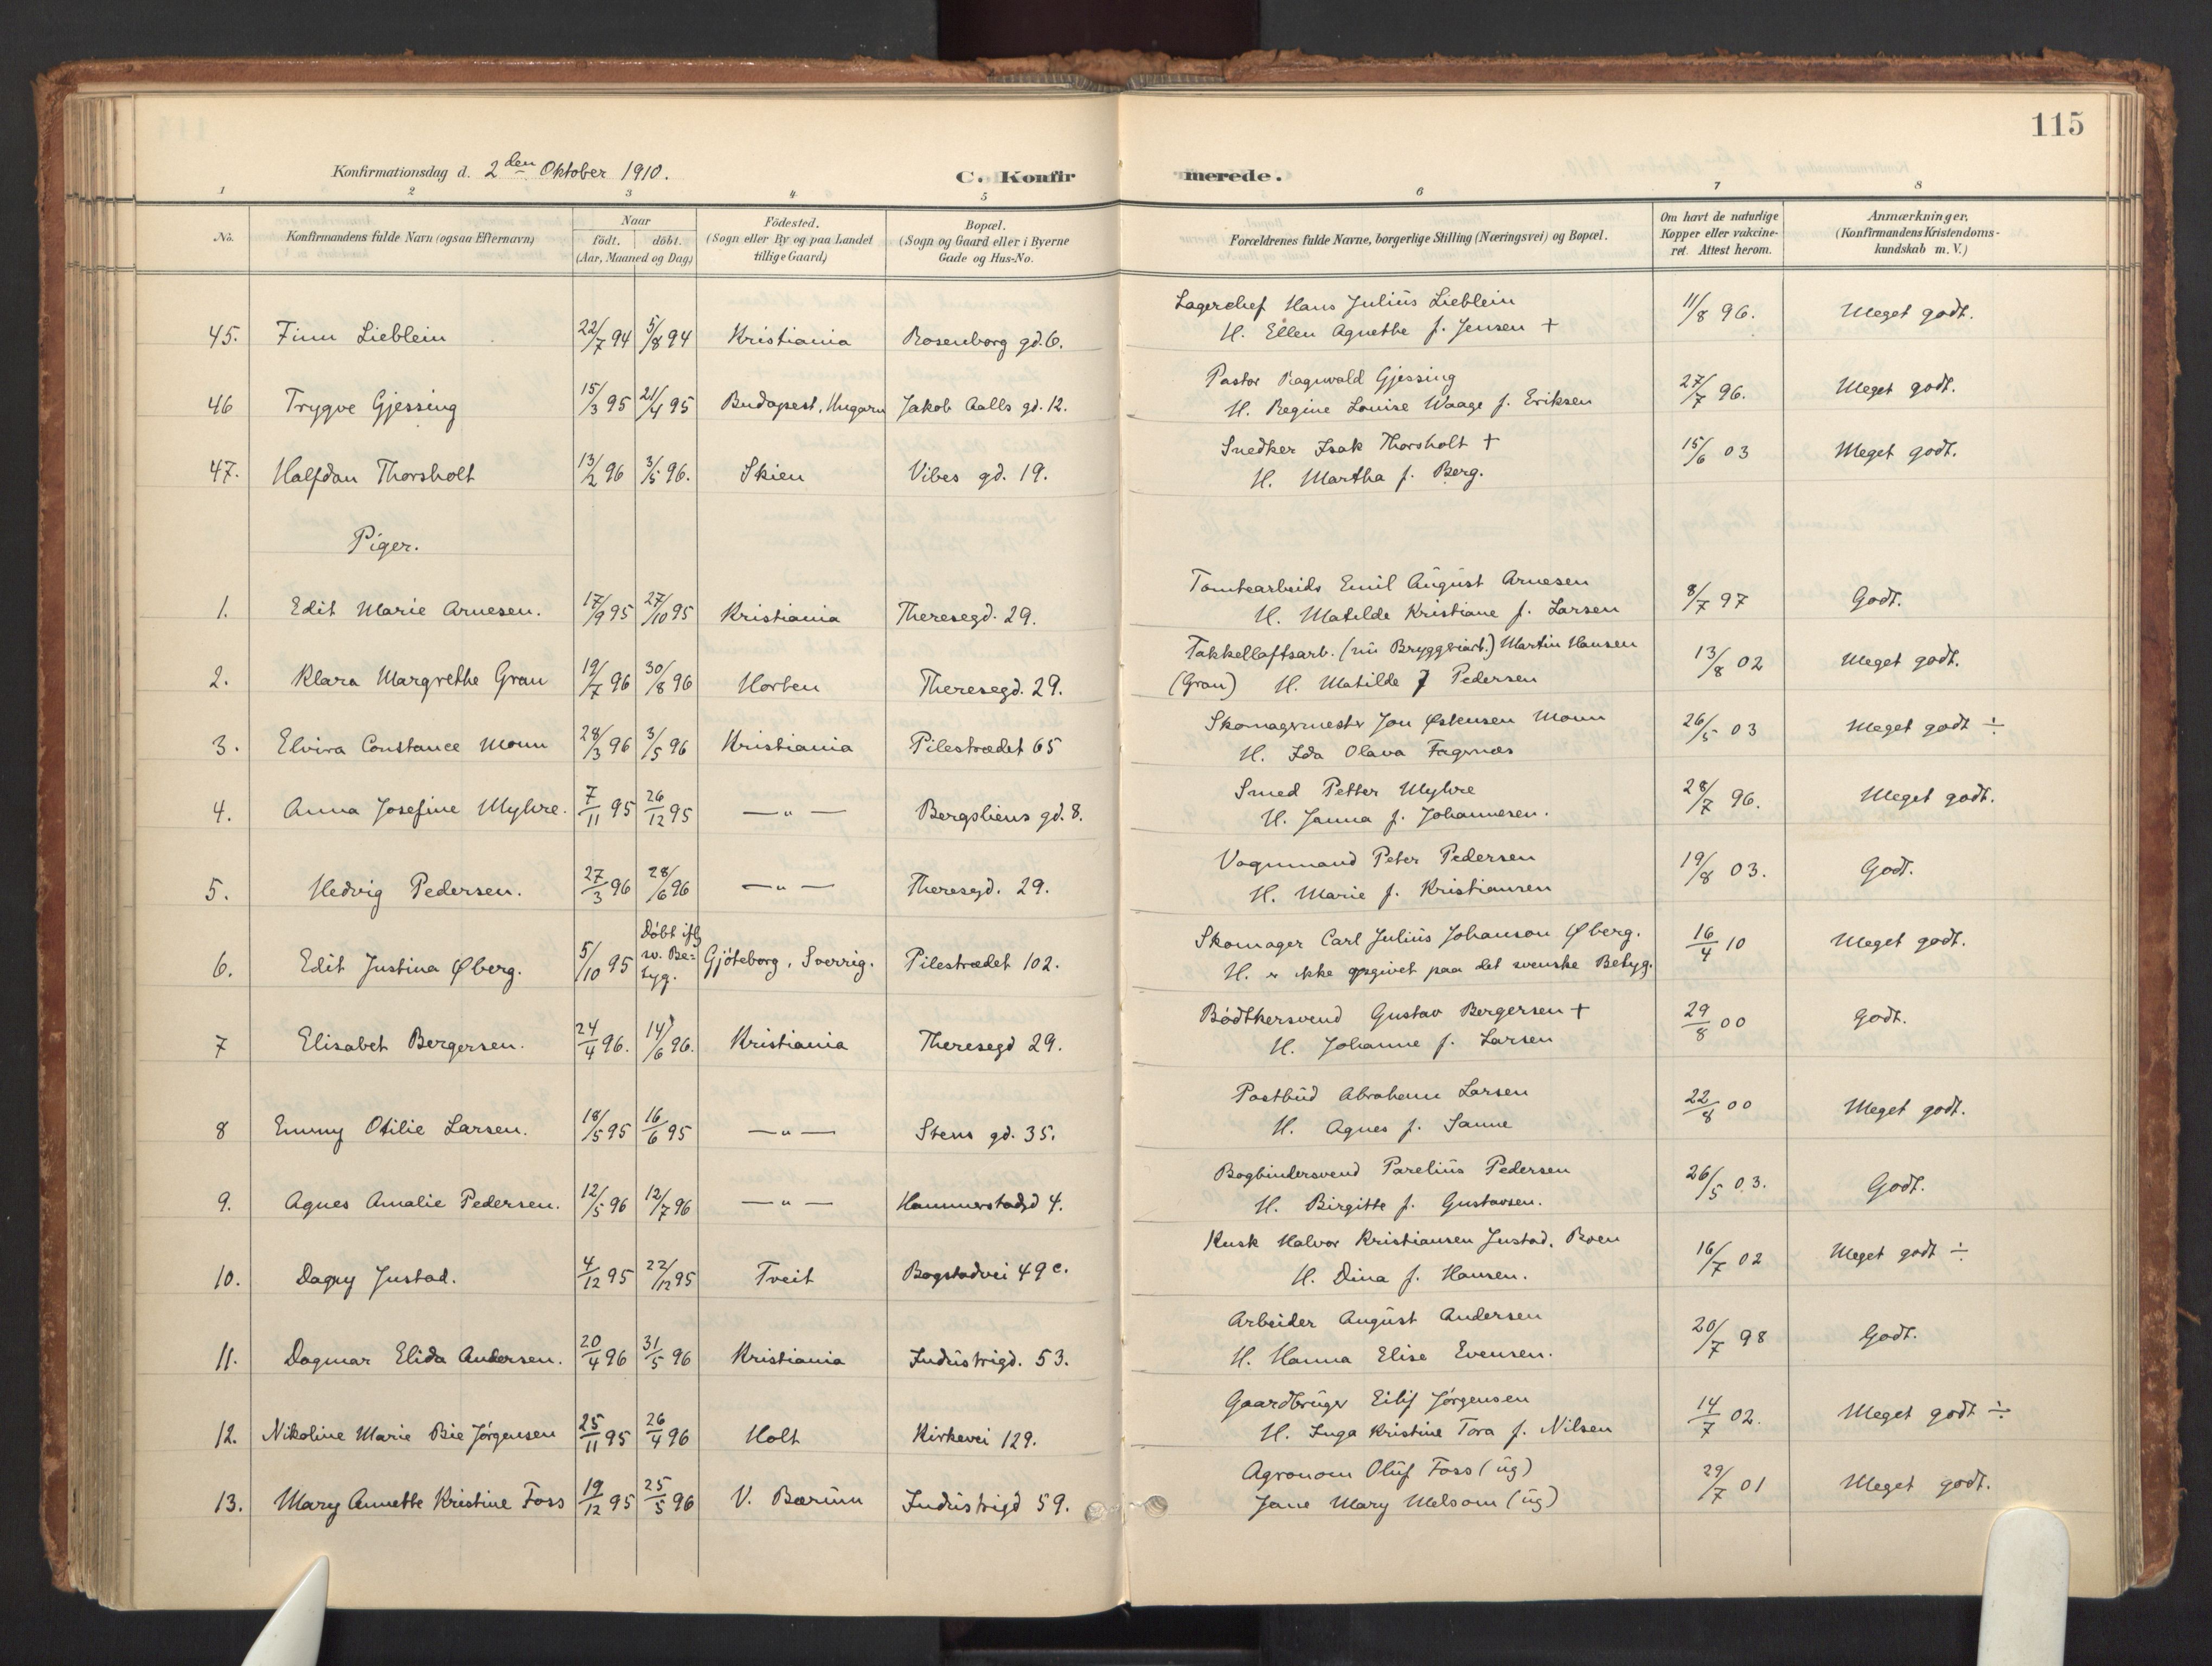 115
Konfirmationsdag d. 2den Oktober 1910.
C. Konfirmerede.
1 2 3 4 5 6 7 8
No.
Konfirmandens fulde Navn (ogsaa Efternavn)
Naar
födt. döbt.
(Aar, Maaned og Dag)
Födested.
(Sogn eller By og paa Landet
tillige Gaard)
Bopæl.
(Sogn og Gaard eller i Byerne
Gade og Hus-No.
Forældrenes fulde Navne, borgerlige Stilling (Næringsvei) og Bopæl.
Om havt de naturlige
Kopper eller vakcine-
ret. Attest herom.
Anmærkninger.
(Konfirmandens Kristendoms-
kundskab m. V.)
Lagerchef Hans Julius Lieblein
45. Finn Lieblein 22/7 94 5/8 94 Kristiania Rosenborg gd. 6. H. Ellen Agnethe f. Jensen + 11/8 96. Meget godt.
Pastor Ragnvald Gjessing
46 Trygve Gjessing 15/3 95 21/4 95 Budapest, Ungarn Jakob Aalls gd. 12. H. Regine Louise Waage f. Eriksen 27/7 96. Meget godt.
Snedker Isak Thorsholt +
47. Halfdan Thorsholt 13/2 96 3/5 96. Skien Vibes gd. 19. H. Martha f. Berg. 15/6 03 Meget godt.
Piger.
Tomtearbeids Emil August Arnesen
1. Edit Marie Arnesen. 17/9 95 27/10 95 Kristiania Theresegd. 29. H. Matilde Kristiane f. Larsen 8/7 97 Godt.
Takkelloftsarb. (nu Bryggeriarb.) Martin Hansen
2. Klara Margrethe Gran 19/7 96 30/8 96 Horten Theresegd. 29. (Gran) H. Matilde f Pedersen 13/8 02 Meget godt.
Skomagermester Jon Østensen Moun
3. Elvira Constance Moun 28/3 96 3/5 96 Kristiania Pilestrædet 65 H. Ida Olava Fagernæs 26/5 03 Meget godt ÷
Smed Petter Myhre
4. Anna Josefine Myhre. 7/11 95 26/12 95 — " — Bergsliens gd. 8. H. Janna f. Johannesen. 28/7 96. Meget godt.
Vognmand Peter Pedersen
5. Hedvig Pedersen. 27/3 96 28/6 96 — " — Theresegd. 29. H. Marie f. Kristiansen 19/8 03. Godt.
Skomager Carl Julius Johanson Øberg.
6. Edit Justina Øberg. 5/10 95 Döbt iflg sv. Be-tyg. Gjöteborg, Sverrig. Pilestrædet 102. H. er ikke opgivet paa det svenske Betyg. 16/4 10 Meget godt.
Bødtkersvend Gustav Bergersen +
7 Elisabet Bergersen. 24/4 96. 14/6 96. Kristiania Theresegd 29. H. Johanne f. Larsen 29/8 00 Godt.
Postbud Abraham Larsen
8 Emmy Otilie Larsen. 18/5 95 16/6 95 — " — Stens gd. 35. H. Agnes f. Sanne 22/8 00 Meget godt.
Bogbindersvend Parelius Pedersen
9. Agnes Amalie Pedersen. 12/5 96 12/7 96 — " — Hammerstadgd 4. H. Birgitte f. Gustavsen. 26/5 03. Godt.
Kusk Halvor Kristiansen Justad, Boen
10. Dagny Justad. 4/12 95 22/12 95 Tveit Bogstadvei 49 c. H. Dina f. Hansen. 16/7 02 Meget godt ÷
Arbeider August Andersen
11. Dagmar Elida Andersen. 20/4 96 31/5 96 Kristiania Industrigd. 53. H. Hanna Elise Evensen. 20/7 98 Godt.
Gaardbruger Eilif Jørgensen
12. Nikoline Marie Bie Jørgensen 25/11 95 26/4 96 Holt Kirkevei 129. H. Inga Kristine Tora f. Nilsen 14/7 02. Meget godt ÷
Agronom Oluf Foss (ug)
13. Mary Annette Kristine Foss 19/12 95 25/5 96 V. Bærum Industrigd 59. Jane Mary Melsom (ug) 29/7 01 Meget godt.